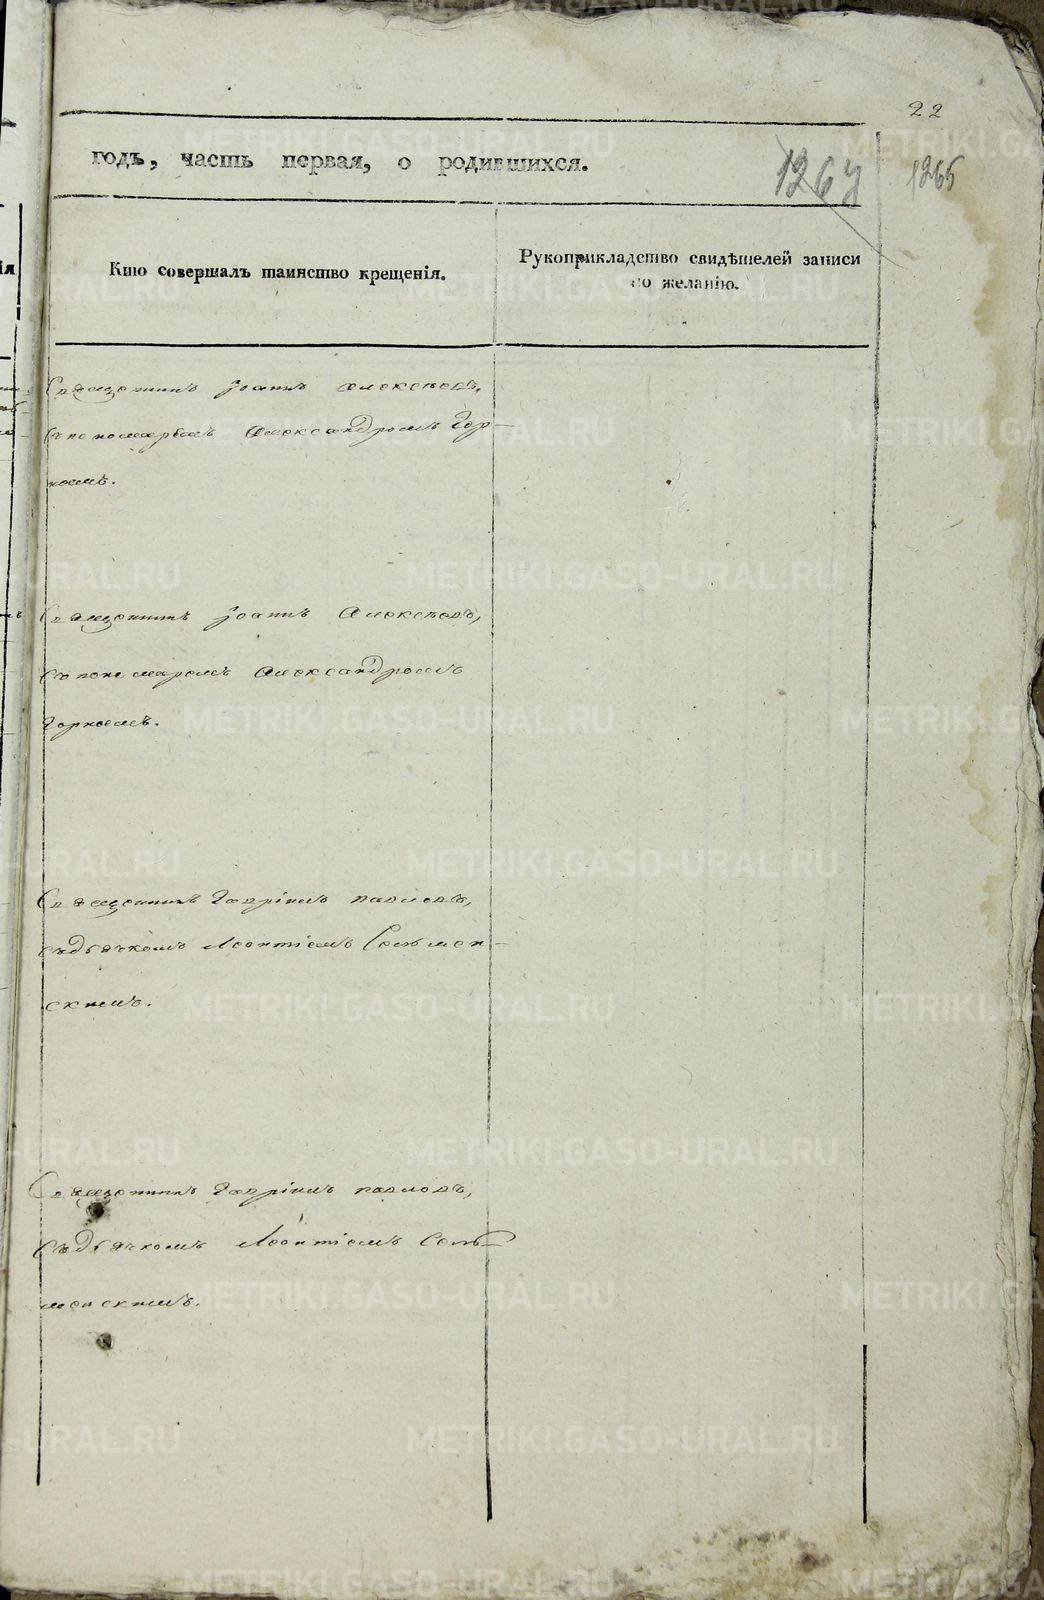 22
годъ, часть первая, о родившихся.
1264
1265
Кто совершалъ таинство крещенія.
Рукоприкладство свидѣтелей записи
по желанію.
Священникъ Іоаннъ Алексѣевъ,
съ пономаремъ Александромъ Гор-
нымъ.
Священникъ Іоаннъ Алексѣевъ,
съ пономаремъ Александромъ
Горнымъ.
Священникъ Гавріилъ Павловъ,
съ дьячкомъ Леонтіемъ
скимъ.
Священникъ Гавріилъ Павловъ,
съ дьячкомъ Леонтіемъ
METRIKI.GASO-URAL.RU